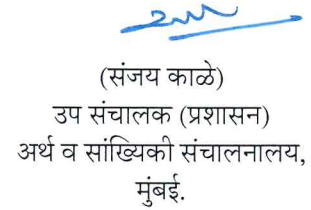 (संजय काळे)
उप संचालक (प्रशासन)
अर्थ व सांख्यिकी संचालनालय,
मुंबई.